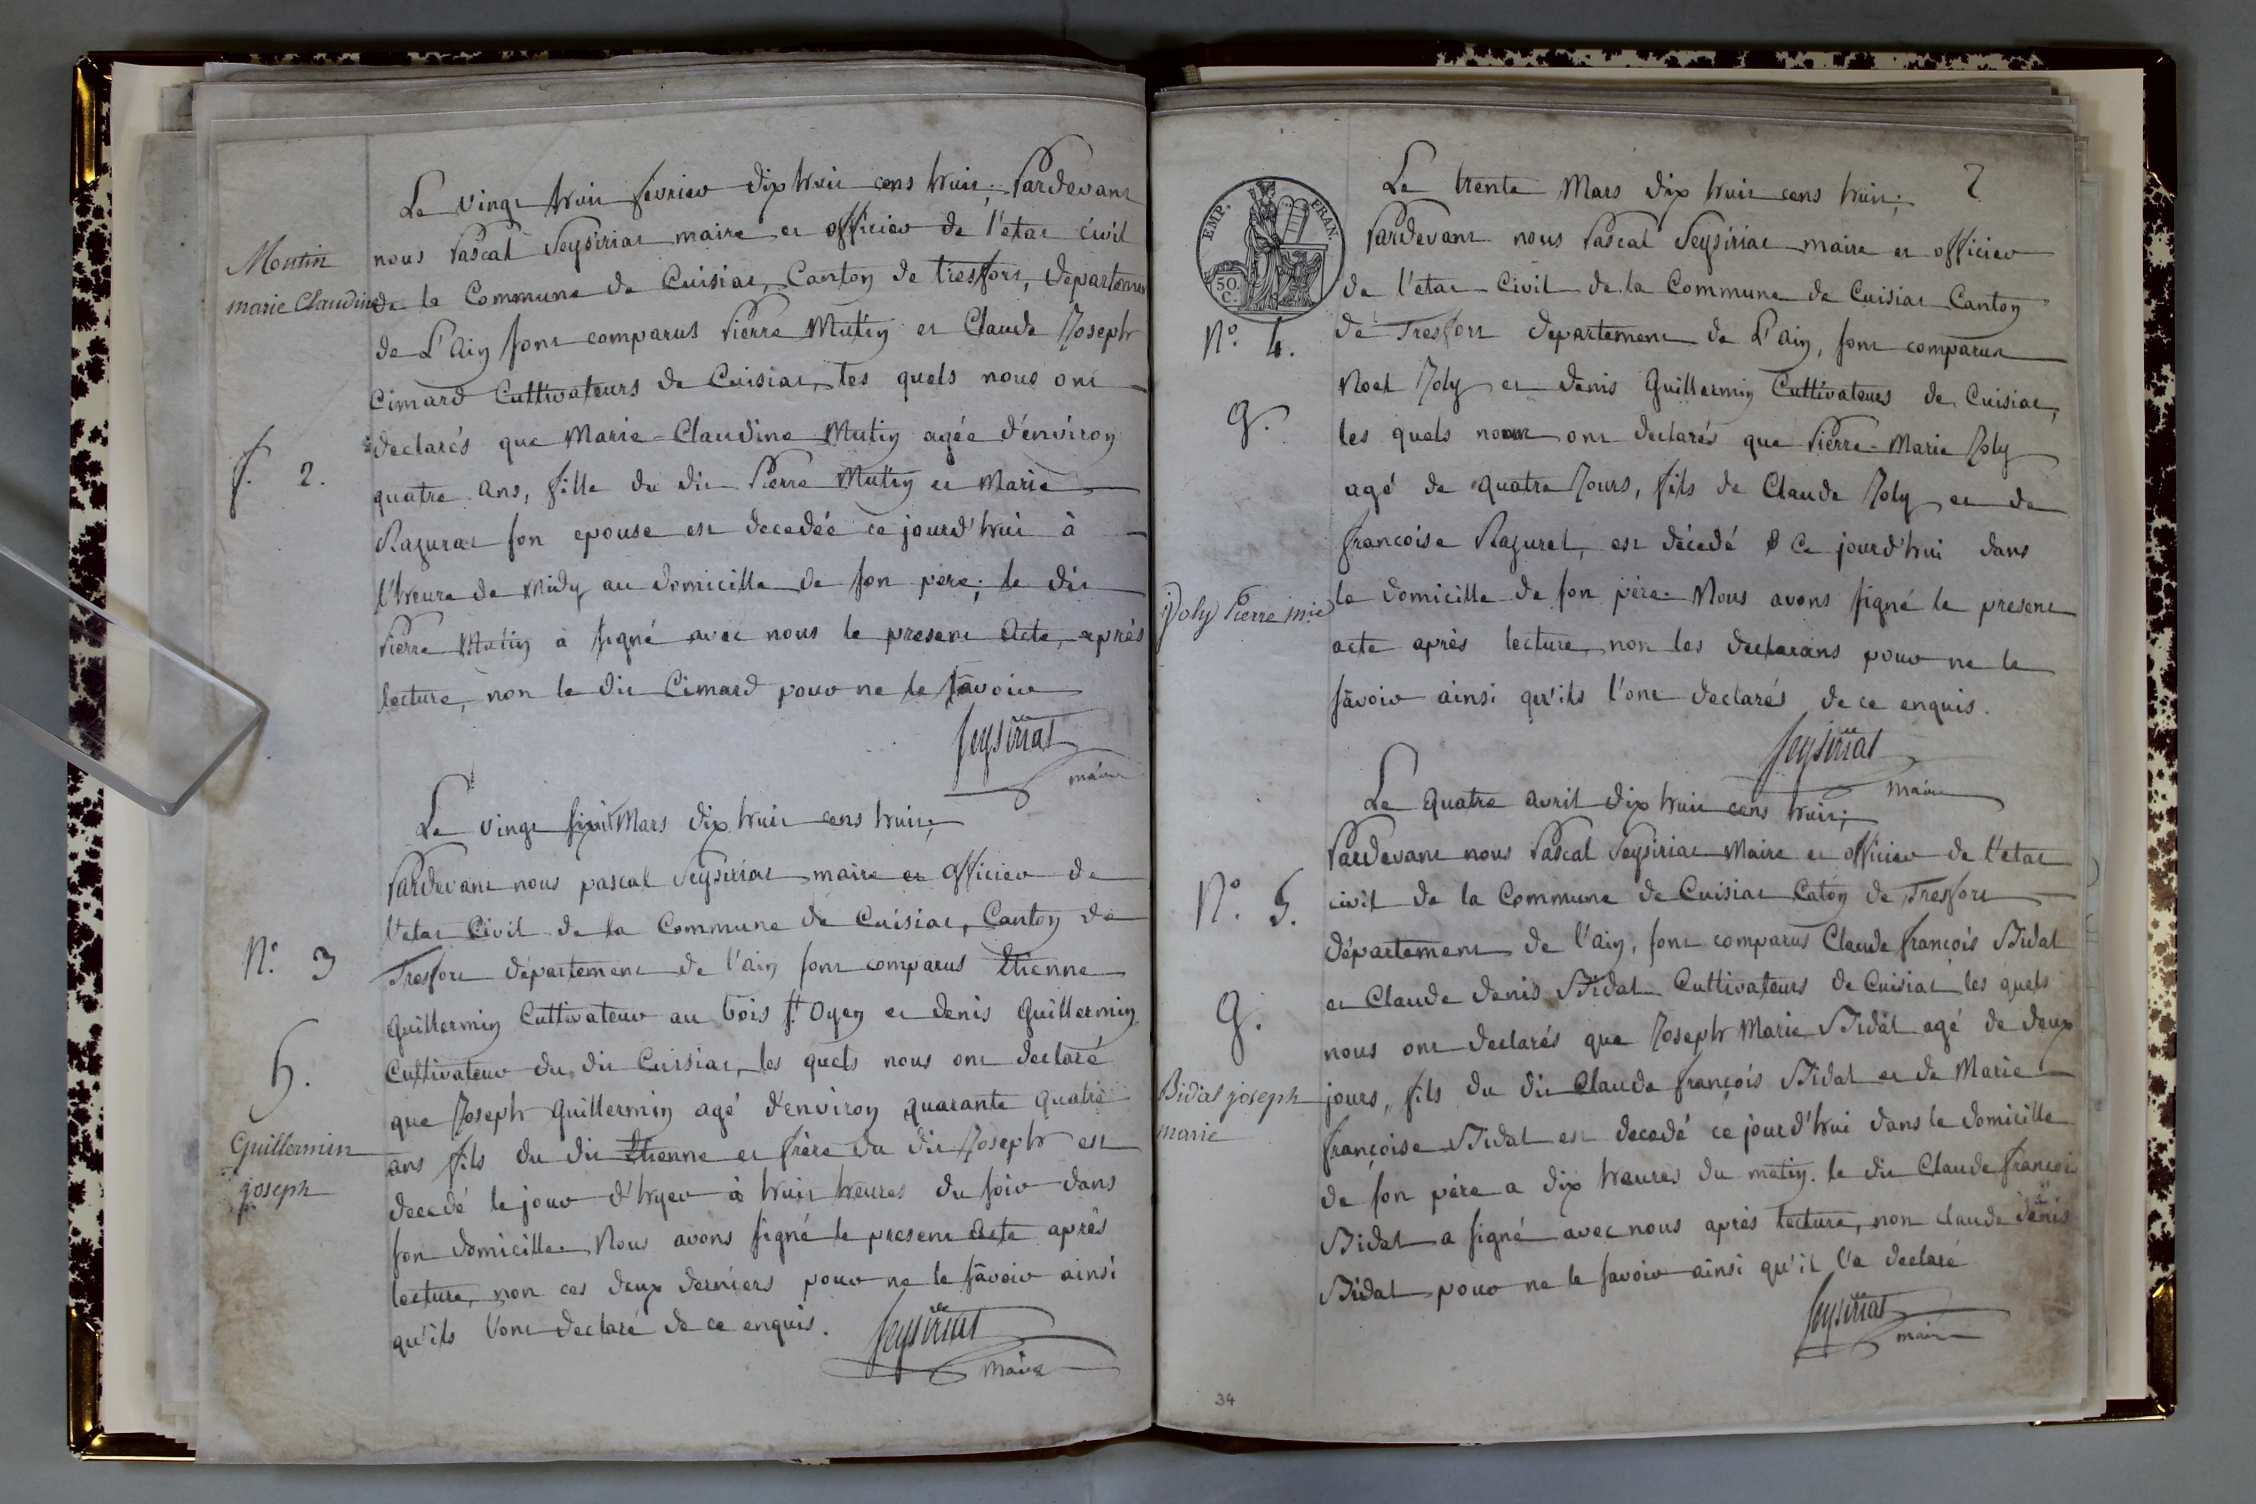 Le vingt huit fevrier dix huit cens huit; Pardevant
nous Pascal Seysiriat maire et officier de l'etat civil
Moutin
marie Claudine
de la Commune de Cuisiat, Canton de tresfort, departement
de L'Ain sont comparus Pierre Mutin et Claude Joseph
Cimard Cultivateurs de Cuisiat, les quels nous ont
declarés que Marie-Claudine Mutin agée d'environ
f. 2.
quatre ans, fille du dit Pierre Mutin et Marie
Razurat son epouse est decedée ce jourd'hui à
l'heure de Midy au domicille de son père; le dit
Pierre Mutin à signé avec nous le present Acte, après
lecture, non le dit Cimard pour ne le savoir
Seysiriat
maire
Le vingt Mars dix huit cens huit;
Pardevant nous pascal Seysiriat maire et officier de
l'etat Civil de la Commune de Cuisiat, Canton de
N.° 3
Tresfort département de l'ain sont comparus Etienne
Guillermin Cultivateur au bois st Oyen et denis Guillermin
h.
Cultivateur du dit Cuisiat, les quels nous ont declaré
que Joseph Guillermin agé d'environ quarante quatre
Guillermin
joseph
ans fils du dit Etienne et frère du dit Joseph est
decedé le jour d'hyer à huit heures du soir dans
son domicille. Nous avons signé le present Acte après
lecture, non ces deux derniers pour ne le savoir ainsi
qu'ils l'ont declaré de ce enquis.
Seysiriat
maire
2
EMP. FRAN.
50.
C.
Le trente Mars dix huit cens huit;
Pardevant nous Pascal Seysiriat maire et officier
de l'etat Civil de la Commune de Cuisiat Canton
N.° 4.
de Tresfort departement de L'ain, sont comparus
Noel Joly et denis Guillermin Cultivateurs de Cuisiat,
g.
les quels nous ont declarés que Pierre-Marie Joly
agé de quatre Jours, fils de Claude Joly et de
françoise Razurel, est décedé ce jourd'hui dans
Joly Pierre mie
le domicille de son père. Nous avons signé le present
acte après lecture, non les declarans pour ne le
savoir ainsi qu'ils l'ont declarés de ce enquis.
Seysiriat
maire
Le quatre avril dix huit cens huit;
Pardevant nous Pascal Seysiriat Maire et officier de l'etat
N.° 5.
civil de la Commune de Cuisiat Caton de Tresfort
département de l'ain, sont comparus Claude françois Bidat
et Claude denis Bidat Cultivateurs de Cuisiat les quels
g.
nous ont declarés que Joseph Marie Bidat agé de deux
Bidat joseph
marie
jours, fils du dit Claude françois Bidat et de Marie
françoise Bidat est decedé ce jourd'hui dans le domicille
de son père a dix heures du matin. le dit Claude françois
Bidat a signé avec nous après lecture, non claude denis
Bidat pour ne le savoir ainsi qu'il l'a declaré
Seysiriat
maire
34